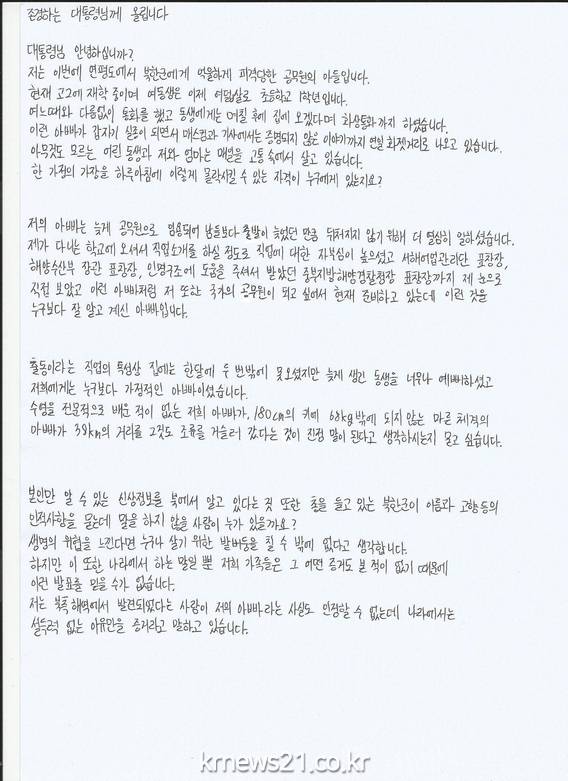 존경하는 대통령님께 올립니다
대통령님 안녕하십니까?
저는 이번에 연평도에서 북한군에게 억울하게 피격당한 공무원의 아들입니다.
현재 고2에 재학 중이며 여동생은 이제 여덟살로 초등학교 1학년입니다.
여느때와 다름없이 통화를 했고 동생에게는 며칠 후에 집에 오겠다며 화상통화까지 하였습니다.
이런 아빠가 갑자기 실종이 되면서 매스컴과 기사에서는 증명되지 않은 이야기까지 연일 화젯거리로 나오고 있습니다.
아무것도 모르는 어린 동생과 저와 엄마는 매일을 고통 속에서 살고 있습니다.
한 가정의 가장을 하루아침에 이렇게 몰락시킬 수 있는 자격이 누구에게 있는지요?
저의 아빠는 늦게 공무원으로 임용되어 남들보다 출발이 늦었던 만큼 뒤처지지 않기 위해 더 열심히 일하셨습니다.
제가 다니는 학교에 오셔서 직업소개를 하실 정도로 직업에 대한 자부심이 높으셨고 서해어업관리단 표창장,
해양수산부 장관 표창장, 인명구조에 도움을 주셔서 받았던 중부지방해양경찰청장 표창장까지 제 눈으로
직접 보았고 이런 아빠처럼 저 또한 국가의 공무원이 되고 싶어서 현재 준비하고 있는데 이런 것을
누구보다 잘 알고 계신 아빠입니다.
출동이라는 직업의 특성상 집에는 한달에 두 번밖에 못오셨지만 늦게 생긴 동생을 너무나 예뻐하셨고
저희에게는 누구보다 가정적인 아빠이셨습니다.
수영을 전문적으로 배운 적이 없는 저희 아빠가, 180cm의 키에 68kg밖에 되지 않는 마른 체격의
아빠가 38km의 거리를 그것도 조류를 거슬러 갔다는 것이 진정 말이 된다고 생각하시는지 묻고 싶습니다.
본인만 알 수 있는 신상정보를 북에서 알고 있다는 것 또한 총을 들고 있는 북한군이 이름과 고향 등의
인적사항을 묻는데 말을 하지 않을 사람이 누가 있을까요?
생명의 위협을 느낀다면 누구나 살기 위한 발버둥을 칠 수 밖에 없다고 생각합니다.
하지만 이 또한 나라에서 하는 말일 뿐 저희 가족들은 그 어떤 증거도 본 적이 없기 때문에
이런 발표를 믿을 수가 없습니다.
저는 북측 해역에서 발견되었다는 사람이 저의 아빠라는 사실도 인정할 수 없는데 나라에서는
설득력 없는 이유만을 증거라고 말하고 있습니다.
krnews21.co.kr